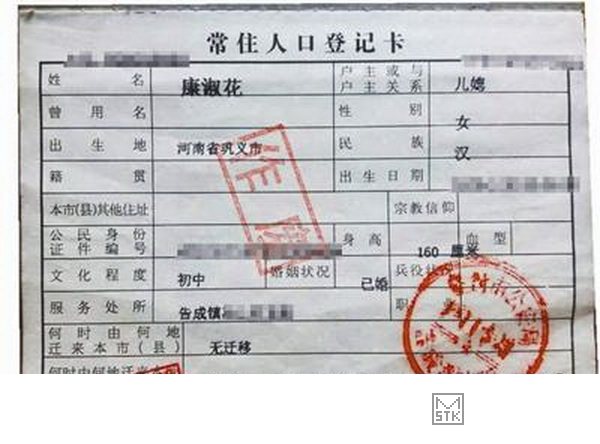 常住人口登记卡
姓名 康淑花 户主或与户主关系 儿媳
曾用名 性别 女
出生地 河南省巩义市 民族 汉
籍贯 出生日期
本市(县)其他住址 宗教信仰
公民身份证件编号 身高 160 厘米 血型
文化程度 初中 婚姻状况 已婚 兵役状况
服务处所 告成镇 职
何时由何地迁来本市(县) 无迁移
何时由何地迁来本
作废
M
STK